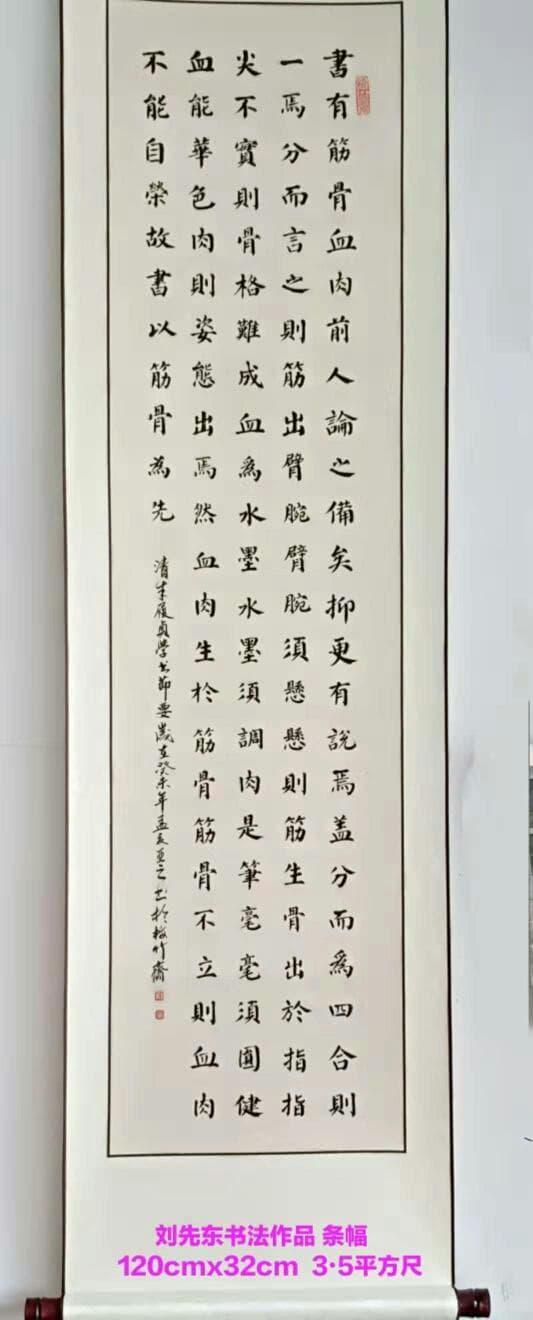 書有筋骨血肉前人論之備矣抑更有說焉盖分而為四合則
一焉分而言之則筋出臂腕臂腕須懸懸則筋生骨出於指指
尖不實則骨格難成血為水墨水墨須調肉是筆毫毫須圓健
血能華色肉則姿態出焉然血肉生於筋骨筋骨不立則血肉
不能自榮故書以筋骨為先
清朱履貞學书節要歲在癸未年孟夏之书於梅竹齋
刘先东书法作品 条幅
120cmx32cm 3·5平方尺